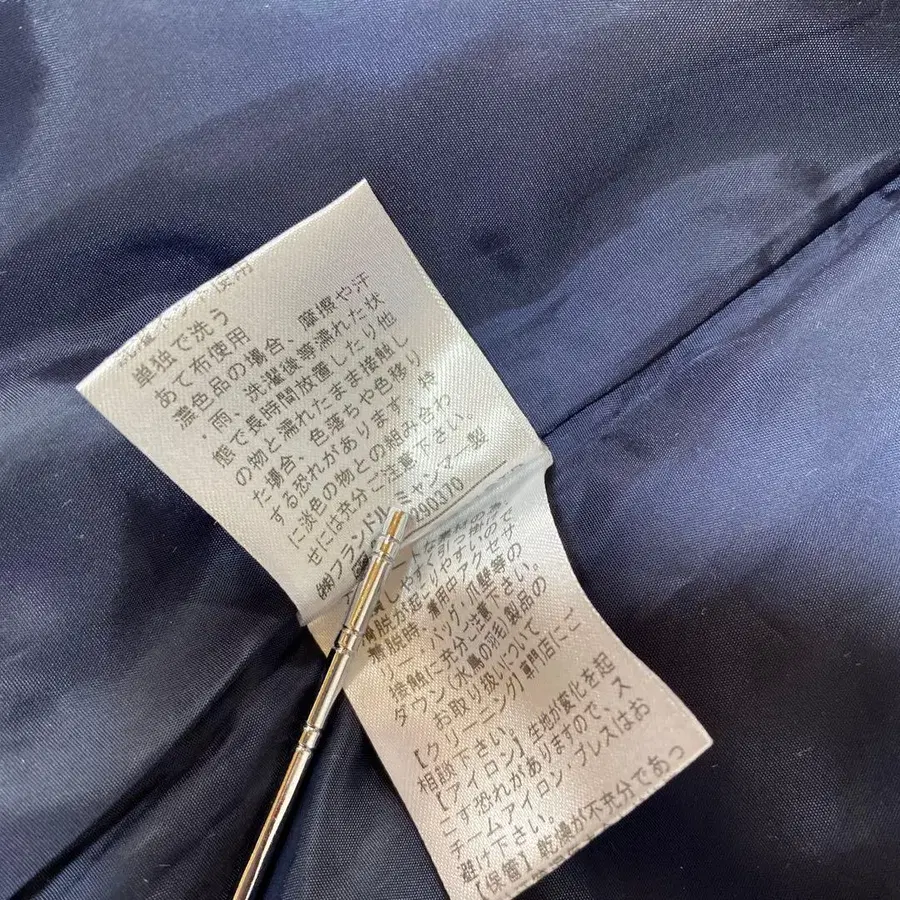 単独で洗う
あて布使用
濃色品の場合、摩擦や汗
・雨、洗濯後等濡れた状
態で長時間放置したり他
の物と濡れたまま接触し
た場合、色落ちや色移り
する恐れがあります。特
に淡色の物との組み合わ
せには充分ご注意下さい。
㈱フランドル ミャンマー製
290370
着脱時、着用中アクセサ
リー・バッグ・爪・壁等の
接触に充分ご注意下さい。
ダウン(水鳥の羽毛)製品の
お取り扱いについて
【クリーニング】専門店にご
相談下さい。
【アイロン】生地が変化を起
こす恐れがありますので、ス
チームアイロン・プレスはお
避け下さい。
【保管】乾燥が不充分であっ